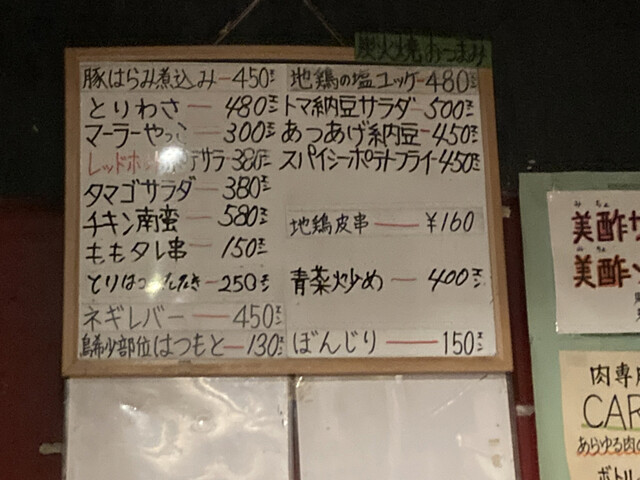 炭火焼おつまみ
豚はらみ煮込み-450円
とりわさ-480円
マーラーやっこ-300円
レッドホットポテサラ380円
タマゴサラダ-380円
チキン南蛮-580円
ももタレ串-150円
とりはつたたき-250円
ネギレバー-450円
鳥希少部位はつもと-130円
地鶏の塩ユッケ-480円
トマ納豆サラダ-500円
あつあげ納豆-450円
スパイシーポテトフライ-450円
地鶏皮串-¥160
青菜炒め-400円
ぼんじり-150円
みちょ
美酢
みちょ
美酢
肉専
CAR
あらゆる肉の
ボトル